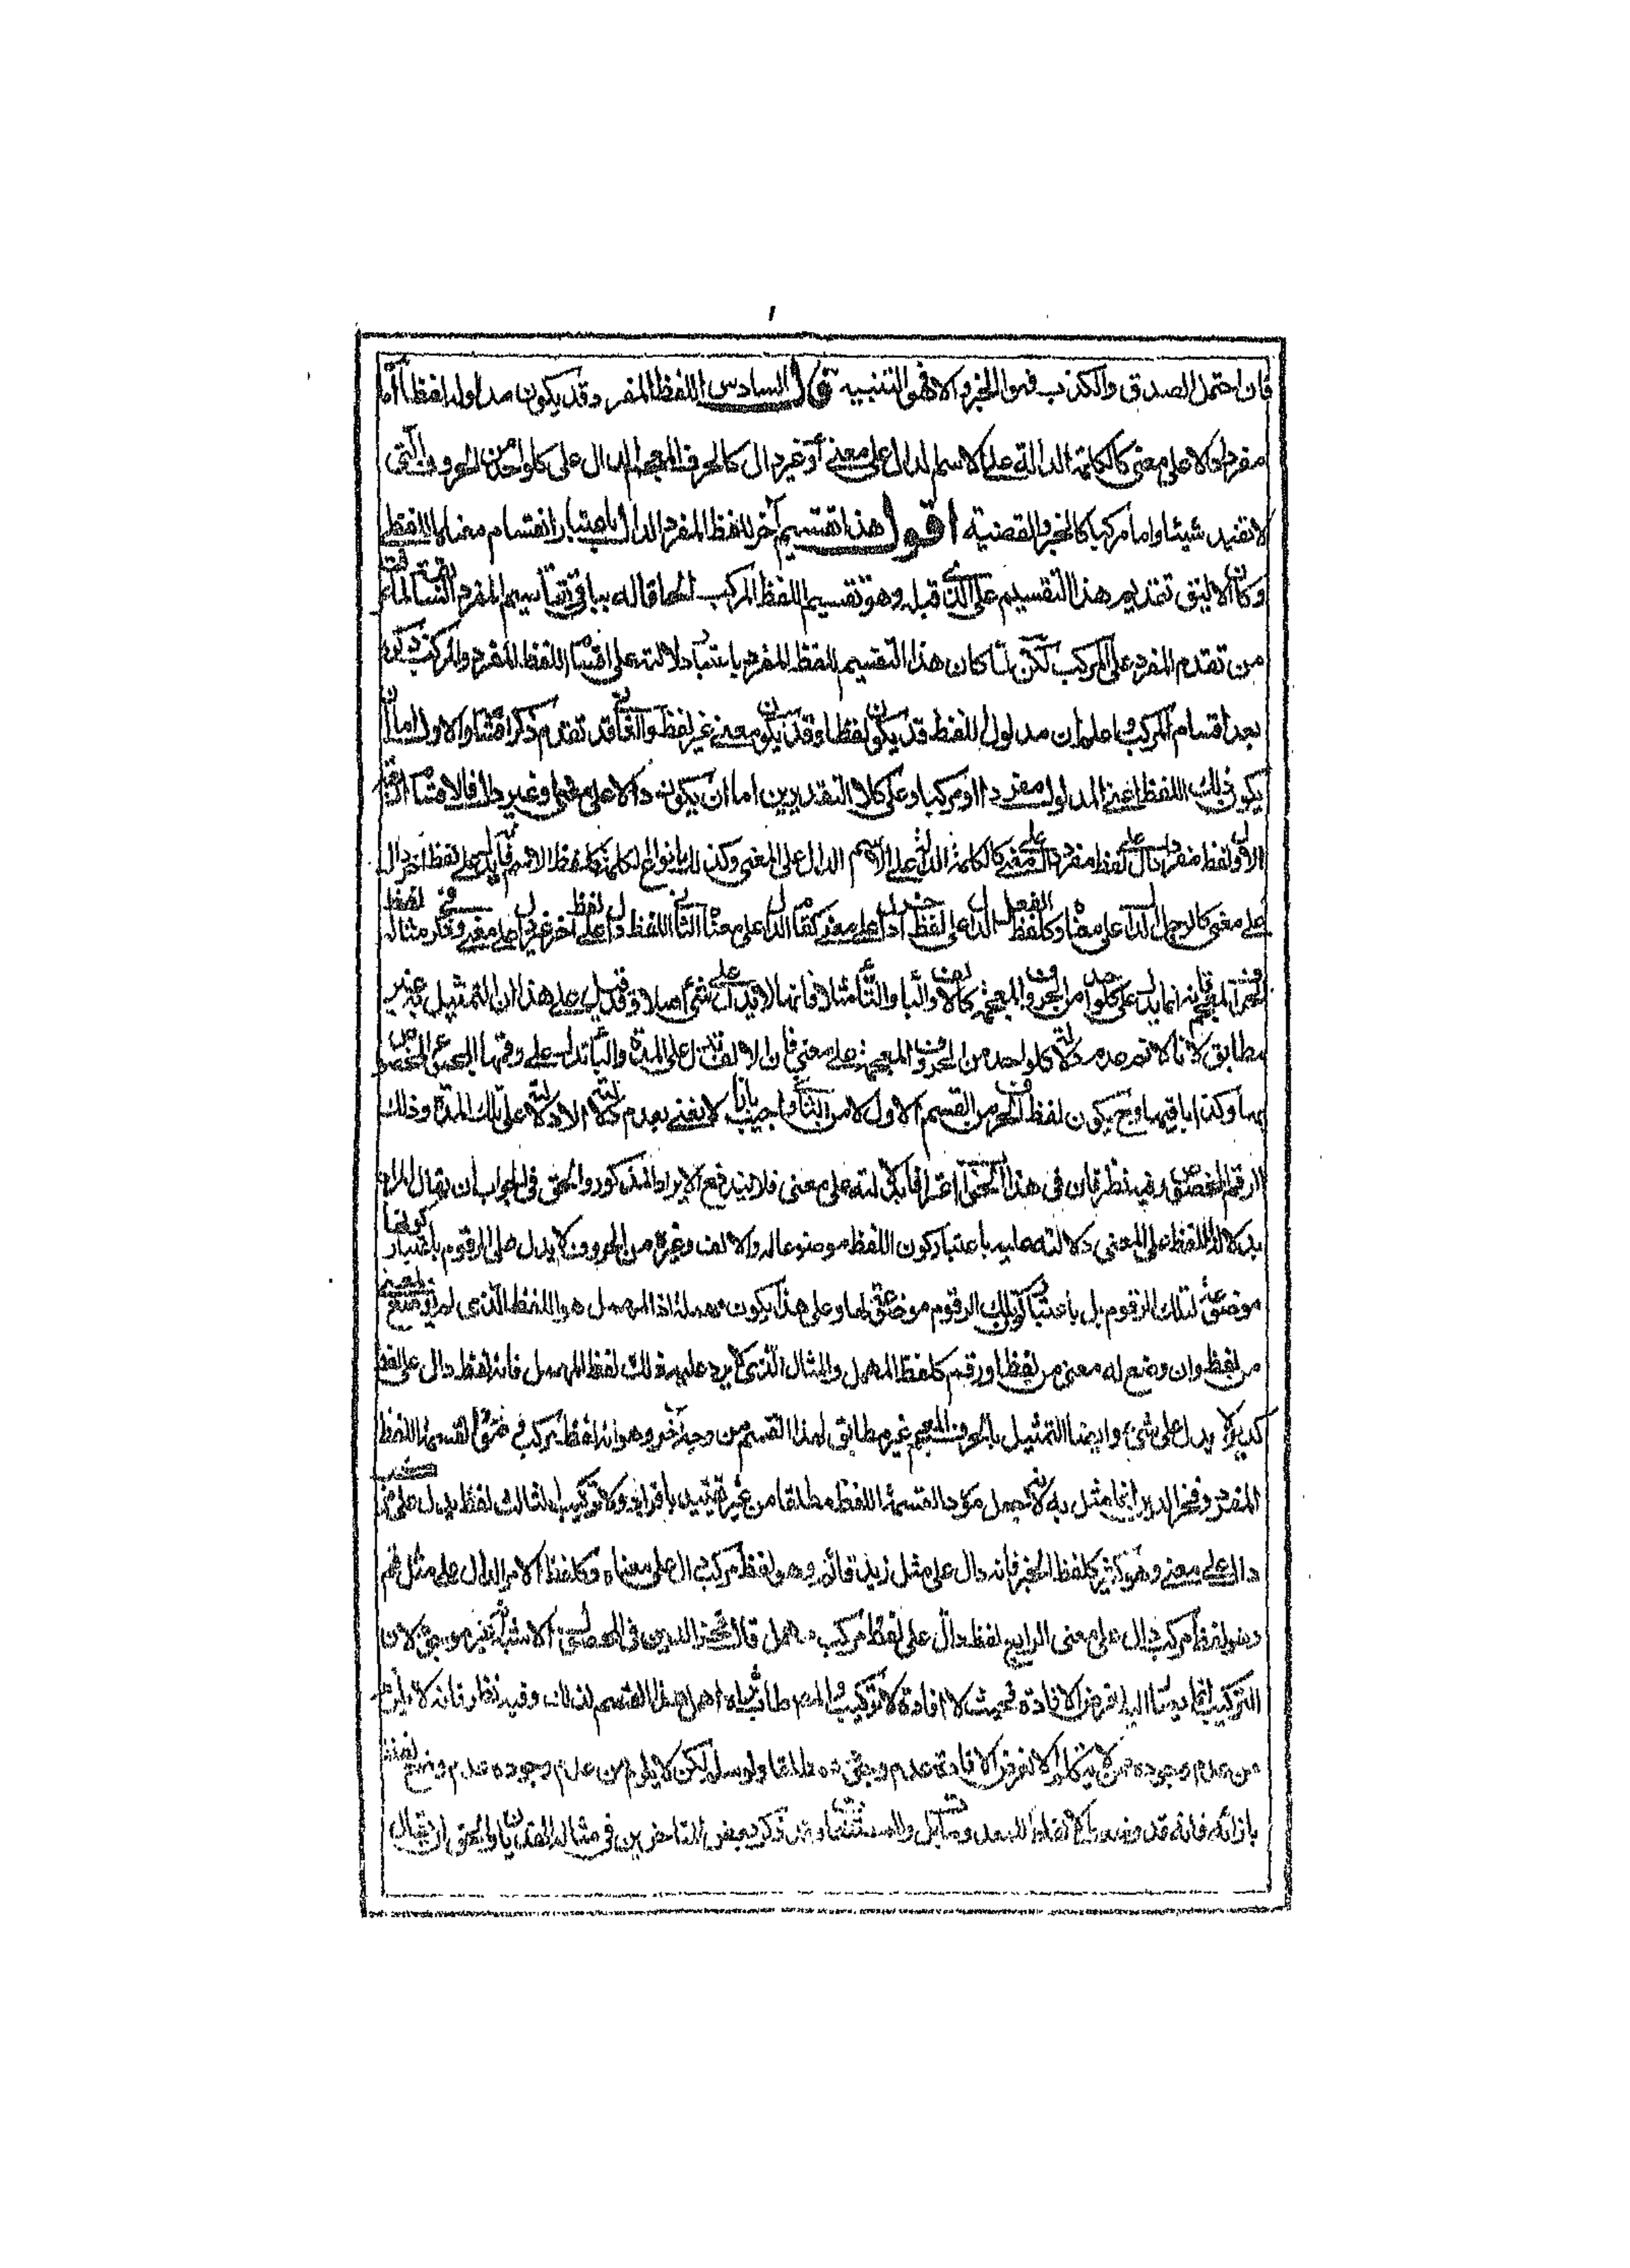 فان احتمل الصدق والكذب فهو الخبر والا فهو التنبيه قال السادس اللفظ المفرد قد يكون مدلوله لفظا اما
مفرد دالا على معنى كالكلمة الدالة على الاسم الدال على معنى أو غير دال كالحرف المعجم الدال على كل واحد من الحروف التى
لا تفيد شيئا واما مركبا كالخبر والقضية اقول هذا تقسيم آخر للفظ المفرد الدال باعتبار انقسام معناه اللفظ
وكان الاليق تقديم هذا التقسيم على الذى قبله وهو تقسيم اللفظ المركب الحاقا له بباقى تقاسيم المفرد
من تقدم المفرد على المركب لكن لما كان هذا التقسيم للفظ المفرد باعتبار دلالته على اقسام اللفظ المفرد والمركب ذكره
بعد اقسام المركب اعلم ان مدلول اللفظ قد يكون لفظا وقد يكون معنى غير لفظ والثانى قد تقدم ذكر اقسامه والاول اما ان
يكون ذلك اللفظ اعنى المدلول مفردا او مركبا وعلى كلا التقديرين اما ان يكون دالا على معنى او غير دال فالاقسام اربعة
الاول لفظ مفرد دال على لفظ مفرد دال على معنى كالكلمة الدالة على الاسم الدال على المعنى وكذا باقى انواع الكلمة كلفظ الاسم فانه يدل على لفظ اخر دال
على معنى كالرجل الدال على معناه وكلفظ الفعل الدال على لفظ اخر دال على معنى كقام الدال على معناه الثانى اللفظ دال على لفظ آخر غير دال على معنى وفى مثاله
الحرف المعجم فانه انما يدل على كل واحد من الحروف المعجمة كالالف والباء والتاء مثلا فانها لا تدل على شئ اصلا وقد قيل على هذا ان التمثيل به غير
مطابق لانا لا نم عدم دلالة كل واحد من الحروف المعجمة على معنى فان الالف تدل على المدة والباء تدل على رقمها المخصوص
بها وكذا باقيها وح يكون لفظ الحرف من القسم الاول لا من الثانى واجيب بانا لا نعنى بعدم دلالته الا دلالة على تلك المدة وذلك
الرقم المخصوص وفيه نظر فان فى هذا اعترافا بدلالته على معنى فلا يندفع الايراد المذكور والحق فى الجواب ان يقال المراد
بدلالة اللفظ على المعنى دلالته عليه باعتبار كون اللفظ موضوعا له والالف وغيره من الحروف لا يدل على الرقوم باعتبار كونها
موضوعة لتلك الرقوم بل باعتبار كون تلك الرقوم موضوعة لها وعلى هذا يكون مهملة اذ المهمل هو اللفظ الذى لم يوضع لمعنى
من لفظ وان وضع له معنى من لفظ او رقم كلفظ المهمل والمثال الذى لا يرد عليه ذلك لفظ المهمل فانه لفظ دال على لفظ
كديز لا يدل على شئ وايضا التمثيل بالحروف المعجم غير مطابق لهذا القسم من وجه آخر وهو انه لفظ مركب لقسمة اللفظ
المفرد وفخر الدين انما مثل به لانه جعل مورد القسمة اللفظ مطلقا من غير تقييد بافراد ولا تركيب الثالث لفظ يدل على مركب
دال على معنى وهو كثير كلفظ الخبر فانه دال على مثل زيد قائم وهو لفظ مركب دال على معناه وكلفظ الامر الدال على مثل قم
وهو لفظ مركب دال على معنى الرابع لفظ دال على لفظ مركب مهمل قال فخر الدين فى المحصول الاشبه انه غير موجود لان
التركيب انما يصار اليه لغرض الافادة فحيث لا افادة لا تركيب والمصـ طاب ثراه اهمل هذا القسم لذلك وفيه نظر فانه لا يلزم
من عدم وجوده لغرض الافادة عدم وجوده مطلقا ولو سلم لكن لا يلزم من عدم وجوده عدم وضع لفظ
بازائه فانه قد وضع الفاظ للمعدوم والمستحيل ذكر بعض المتأخرين فى مثاله الهذيان والحق ان يقال